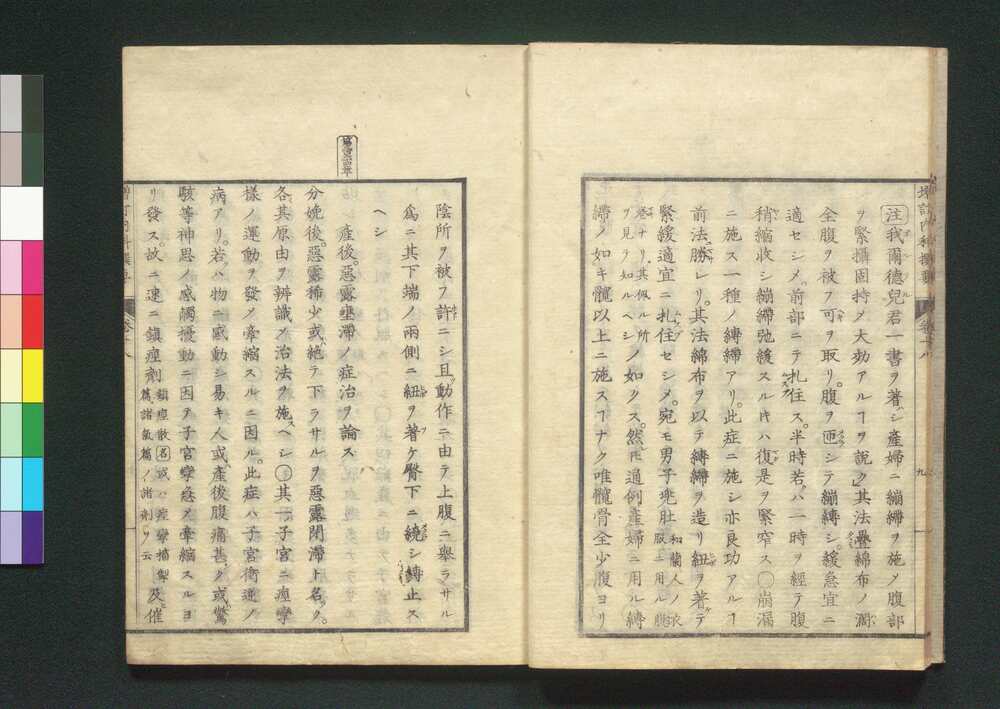 注我爾德兒君一書ヲ著シ産婦ニ繃帶ヲ施メ腹部
ヲ緊攝固持メ大効アルヿヲ說ク其法疊綿布ノ濶
全腹ヲ被フ可ヲ取リ。腹ヲ匝シテ繃縛シ緩急宜ニ
適セシメ。前部ニテ扎住ス。半時若ハ一時ヲ經テ腹
稍縮收シ繃帶弛緩スルキハ復是ヲ緊窄ス〇崩漏
ニ施ス一種ノ縛帶アリ。此症ニ施シ亦良功アルヿ
前法勝レリ。其法綿布ヲ以テ縛帶ヲ造リ紐ヲ著テ
緊緩適宜ニ扎住セシメ。宛モ男子兠肚
和蘭人ノ衣服ニ用ル
卷ナリ。其佩ル所
ヲ見ラ知ルヘシ
ノ如クス。然圧通例産婦ニ用ル縛
帶ノ如キ髖以上ニ施スヿナク唯髖骨全少腹ヨリ
增訂內科撰要
卷十八
九
陰所ヲ被フ許ニシ且動作ニ由テ上腹ニ舉ラサル
爲ニ其下端ノ兩側ニ紐ヲ著ケ臀下ニ繞シ縛止ス
ヘシ
産後。惡露壅滯ノ症治ヲ論ス
分娩後。惡露稀少或絶テ下ラサルヲ惡露閉滯ト名ク。
各其原由ヲ辨識メ治法ヲ施ヘシ〇其一子宮ニ痙攣
樣ノ運動ヲ發メ牽縮スルニ因ル。此症ハ子宮衝逆ノ
病アリ。若ハ物ニ感動シ易キ人或產後腹痛甚ク或驚
駭等神思ノ感觸擾動ニ因テ子宮攣急メ牽縮スルヨ
リ發ス。故ニ速ニ鎭痙劑
鎭痙散名或ハ痙攣
篇諸氣篇ノ諸劑ヲ云
及催